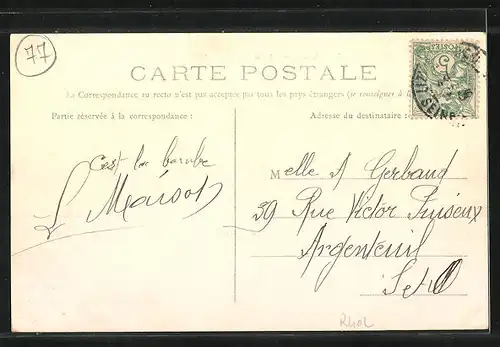 77
CARTE POSTALE
La Correspondance au recto n'est pas acceptée par tous les pays étrangers (se renseigner à
Partie réservée à la correspondance :
Adresse du destinataire :
C'est la
L. Maisot
Melle A Gerbaud
59 Rue Victor Puiseux
Argenteuil
S et O
SEINE